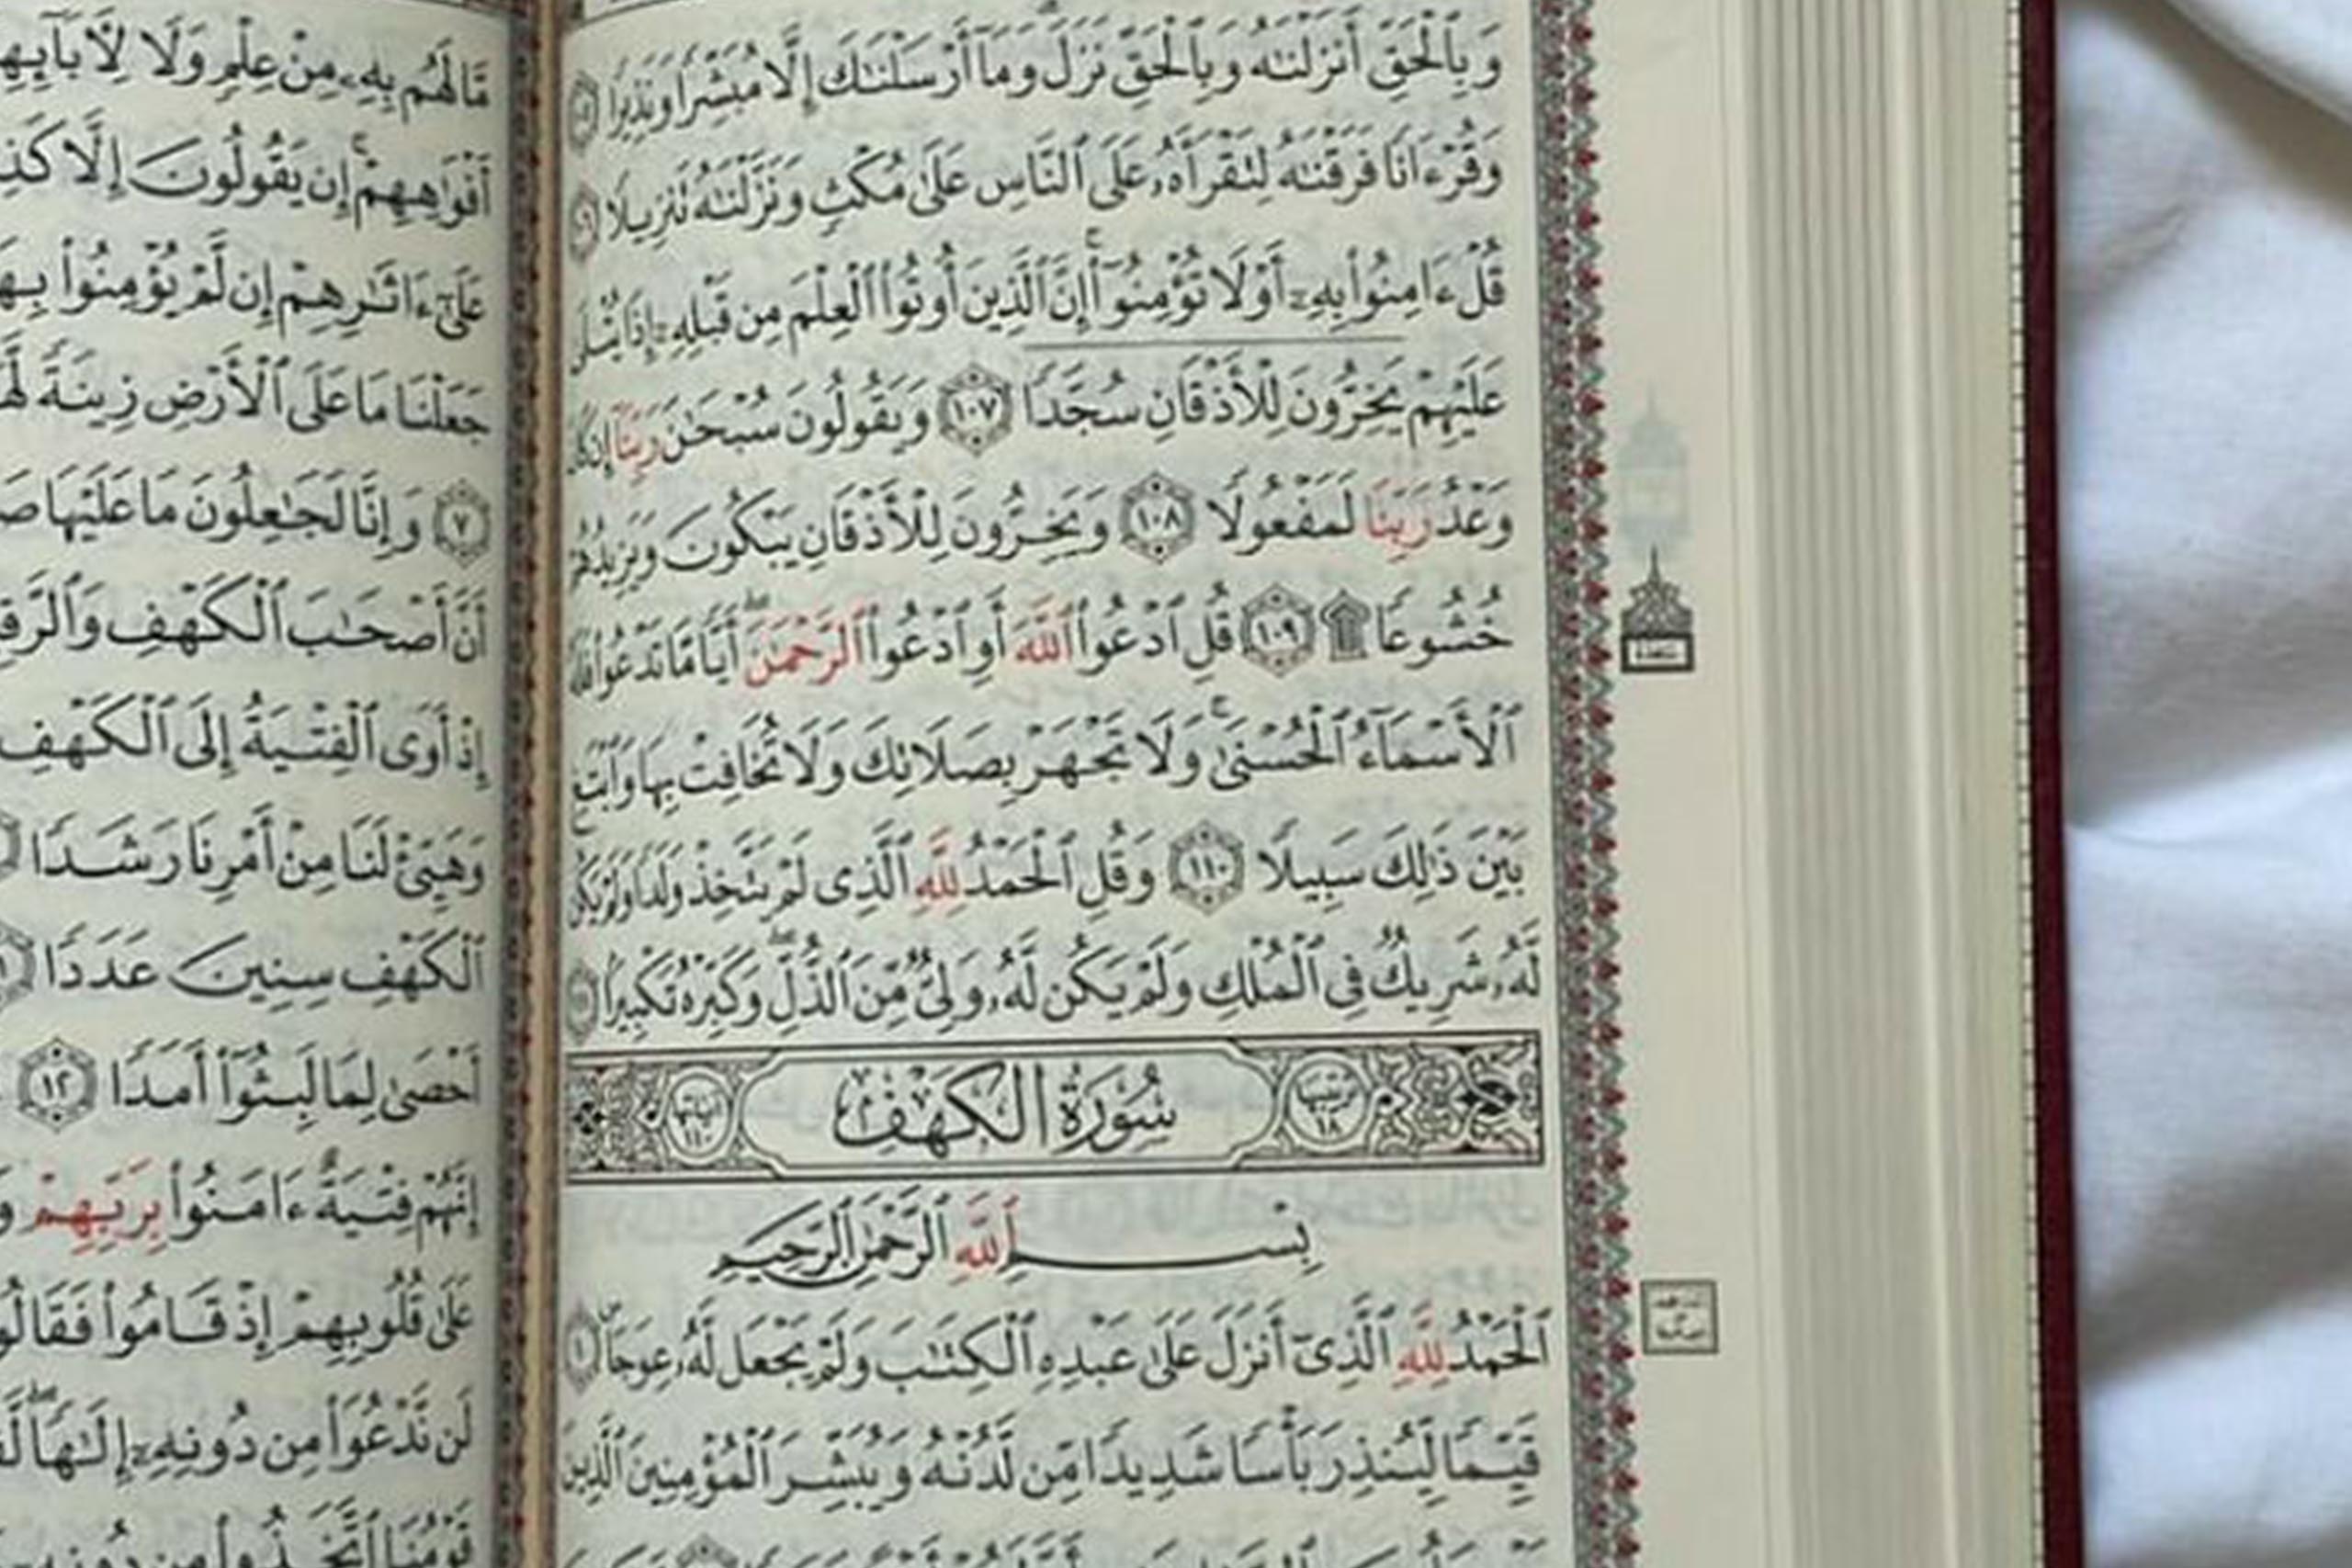 وَبِٱلْحَقِّ أَنزَلْنَٰهُ وَبِٱلْحَقِّ نَزَلَ وَمَآ أَرْسَلْنَٰكَ إِلَّا مُبَشِّرًا وَنَذِيرًا
وَقُرْءَانًا فَرَقْنَٰهُ لِتَقْرَأَهُۥ عَلَى ٱلنَّاسِ عَلَىٰ مُكْثٍ وَنَزَّلْنَٰهُ تَنزِيلًا
قُلْ ءَامِنُوا۟ بِهِۦٓ أَوْ لَا تُؤْمِنُوٓا۟ ۚ إِنَّ ٱلَّذِينَ أُوتُوا۟ ٱلْعِلْمَ مِن قَبْلِهِۦٓ إِذَا يُتْلَىٰ
عَلَيْهِمْ يَخِرُّونَ لِلْأَذْقَانِ سُجَّدًا ١٠٧ وَيَقُولُونَ سُبْحَٰنَ رَبِّنَآ إِن كَانَ
وَعْدُ رَبِّنَا لَمَفْعُولًا ١٠٨ وَيَخِرُّونَ لِلْأَذْقَانِ يَبْكُونَ وَيَزِيدُهُمْ
خُشُوعًا ۩ ١٠٩ قُلِ ٱدْعُوا۟ ٱللَّهَ أَوِ ٱدْعُوا۟ ٱلرَّحْمَٰنَ ۖ أَيًّا مَّا تَدْعُوا۟ فَلَهُ
ٱلْأَسْمَآءُ ٱلْحُسْنَىٰ ۚ وَلَا تَجْهَرْ بِصَلَاتِكَ وَلَا تُخَافِتْ بِهَا وَٱبْتَغِ
بَيْنَ ذَٰلِكَ سَبِيلًا ١١٠ وَقُلِ ٱلْحَمْدُ لِلَّهِ ٱلَّذِى لَمْ يَتَّخِذْ وَلَدًا وَلَمْ يَكُن
لَّهُۥ شَرِيكٌ فِى ٱلْمُلْكِ وَلَمْ يَكُن لَّهُۥ وَلِىٌّ مِّنَ ٱلذُّلِّ ۖ وَكَبِّرْهُ تَكْبِيرًۢا
سُورَةُ الكَهْفِ
بِسْمِ ٱللَّهِ ٱلرَّحْمَٰنِ ٱلرَّحِيمِ
ٱلْحَمْدُ لِلَّهِ ٱلَّذِىٓ أَنزَلَ عَلَىٰ عَبْدِهِ ٱلْكِتَٰبَ وَلَمْ يَجْعَل لَّهُۥ عِوَجَا ۜ ١
قَيِّمًا لِّيُنذِرَ بَأْسًا شَدِيدًا مِّن لَّدُنْهُ وَيُبَشِّرَ ٱلْمُؤْمِنِينَ ٱلَّذِينَ
مَّا لَهُم بِهِۦ مِنْ عِلْمٍ وَلَا لِـَٔابَآئِهِ
أَفْوَٰهِهِمْ ۚ إِن يَقُولُونَ إِلَّا كَذِ
عَلَىٰٓ ءَاثَٰرِهِمْ إِن لَّمْ يُؤْمِنُوا۟ بِهَ
جَعَلْنَا مَا عَلَى ٱلْأَرْضِ زِينَةً لَّهَ
٧ وَإِنَّا لَجَٰعِلُونَ مَا عَلَيْهَا صَ
أَنَّ أَصْحَٰبَ ٱلْكَهْفِ وَٱلرَّقِ
إِذْ أَوَى ٱلْفِتْيَةُ إِلَى ٱلْكَهْفِ
وَهَيِّئْ لَنَا مِنْ أَمْرِنَا رَشَدًا
ٱلْكَهْفِ سِنِينَ عَدَدًا
أَحْصَىٰ لِمَا لَبِثُوٓا۟ أَمَدًا ١٢
إِنَّهُمْ فِتْيَةٌ ءَامَنُوا۟ بِرَبِّهِمْ وَ
عَلَىٰ قُلُوبِهِمْ إِذْ قَامُوا۟ فَقَالُو
لَن نَّدْعُوَا۟ مِن دُونِهِۦٓ إِلَٰهًا ۖ لَّقَ
قَوْمُنَا ٱتَّخَذُوا۟ مِن دُونِهِۦٓ